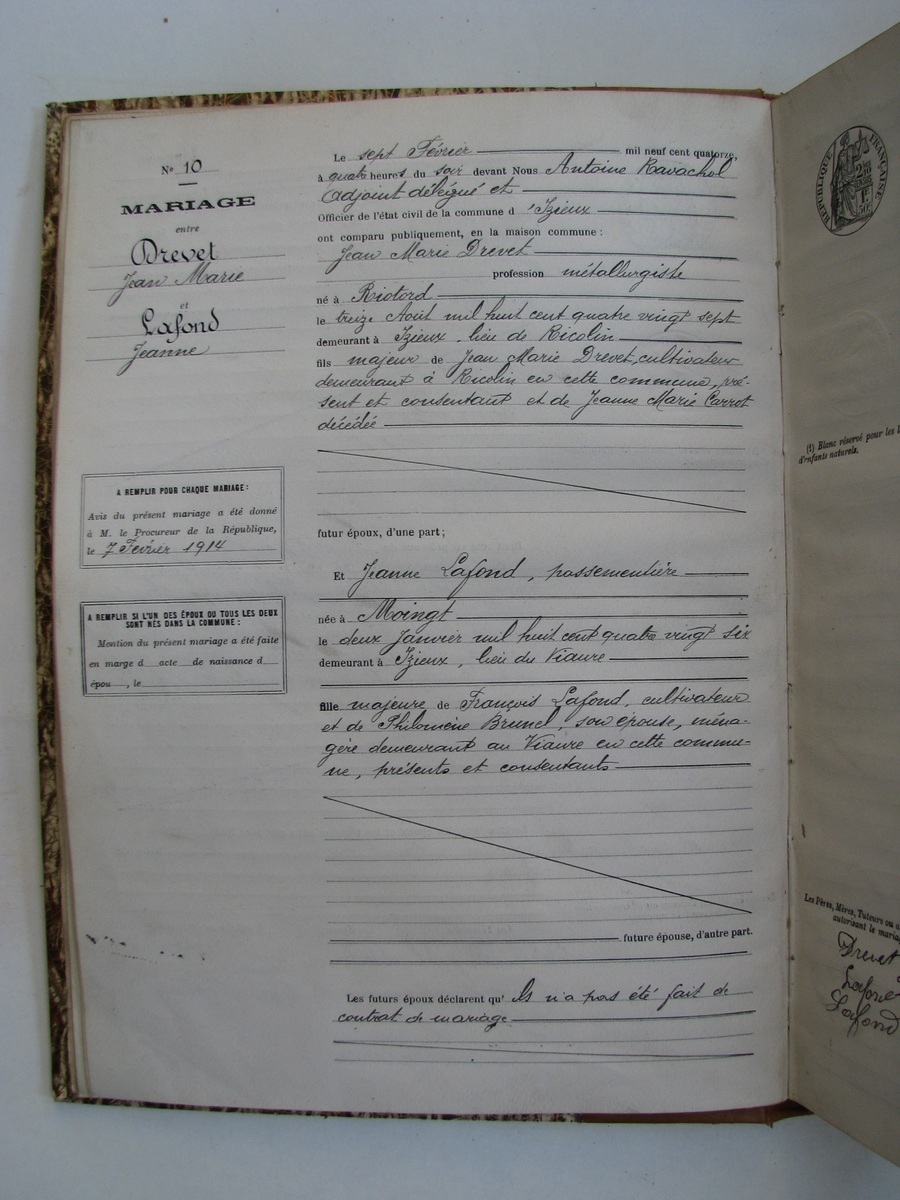 No 10
MARIAGE
entre
Drevet
Jean Marie
et
Lafond
Jeanne
A REMPLIR POUR CHAQUE MARIAGE :
Avis du présent mariage a été donné
à M. le Procureur de la République,
le 7 Février 1914
A REMPLIR SI L'UN DES ÉPOUX OU TOUS LES DEUX
SONT NÉS DANS LA COMMUNE :
Mention du présent mariage a été faite
en marge d acte de naissance d
épou , le
Le sept Février mil neuf cent quatorze,
à quatre heures du soir devant Nous Antoine Ravachol
adjoint délégué et
Officier de l'état civil de la commune d 'Izieux
ont comparu publiquement, en la maison commune :
Jean Marie Drevet
profession métallurgiste
né à Riotord
le treize Août mil huit cent quatre vingt sept
demeurant à Izieux, lieu de Ricolin
fils majeur de Jean Marie Drevet, cultivateur
demeurant à Ricolin en cette commune, pré-
sent et consentant et de Jeanne Marie Carrot
décédée
futur époux, d'une part ;
Et Jeanne Lafond, passementière
née à Moingt
le deux Janvier mil huit cent quatre vingt six
demeurant à Izieux, lieu du Viaure
fille majeure de François Lafond, cultivateur
et de Philomène Brunel, son épouse, ména-
gère demeurant au Viaure en cette commu-
ne, présents et consentants
future épouse, d'autre part.
Les futurs époux déclarent qu' Ils n'a pas été fait de
contrat de mariage
RÉPUBLIQUE FRANÇAISE
(1) Blanc réservé pour les
d'enfants naturels.
Les Pères, Mères, Tuteurs ou
autorisant le
Drevet
Lafond